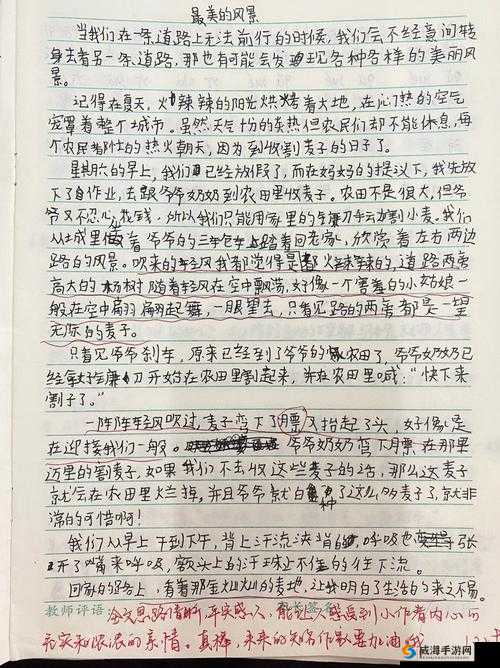 最美的风景
当我们在一条道路上无法前行的时候，我们会不经意间转
身去看另一条道路，那也有可能会发现各种各样的美丽风
景。
记得在夏天，火辣辣的阳光烘烤着大地，在心门热的空气
笼罩着整个城市。虽然天气十分的炎热但农民们却不能休息，每
个农民都忙的热火朝天，因为到收割麦子的日子了。
星期六的早上，我们已经放假了，而在妈妈的提议下，我先放
下了自作业，去跟爷爷奶奶到农田里收麦子。农田不是很大，但爷
爷又不忍心花钱，所以我们只能用家里的镰刀手去割小麦。我们
从城里坐着爷爷的三轮包车踏着回老家，欣赏着左右两边
路的风景。吹来的轻风我都觉得是火辣辣的，道路两旁
高大的杨树随着轻风在空中飘满，好像一个害羞的小姑娘一
般在空中翩翩起舞，一眼望去，只看见路的两旁都是一望
无际的麦子。
只看见爷爷刹车，原来已经到了爷爷的农田了，爷爷奶奶已
经拿好镰刀开始在农田里割起来，并在农田里喊：“快下来
割子了。”
一阵阵轻风吹过，麦子弯下了腰又抬起了头，好像是
在迎接我们一般。爷爷奶奶弯下腰在那里
迈里的割麦子，如果我们不去收这些麦子的话，那么这麦子
就会在农田里烂掉，并且爷爷就白种了这么的麦子了，就非
常的可惜啊！
我们从早上干到下午，背上汗流浃背的，呼吸也张
开了嘴来呼吸，额头上的汗球还不住的往下流。
回家的路上，看着那金灿灿的麦地，让我明白了生活的来之不易。
教师评语 家长签名
全文思路清晰，真实感人，能让人感受到小作者内心的
充实和浓浓的亲情。真棒，未来的知名作家要加油哦
威海手游网